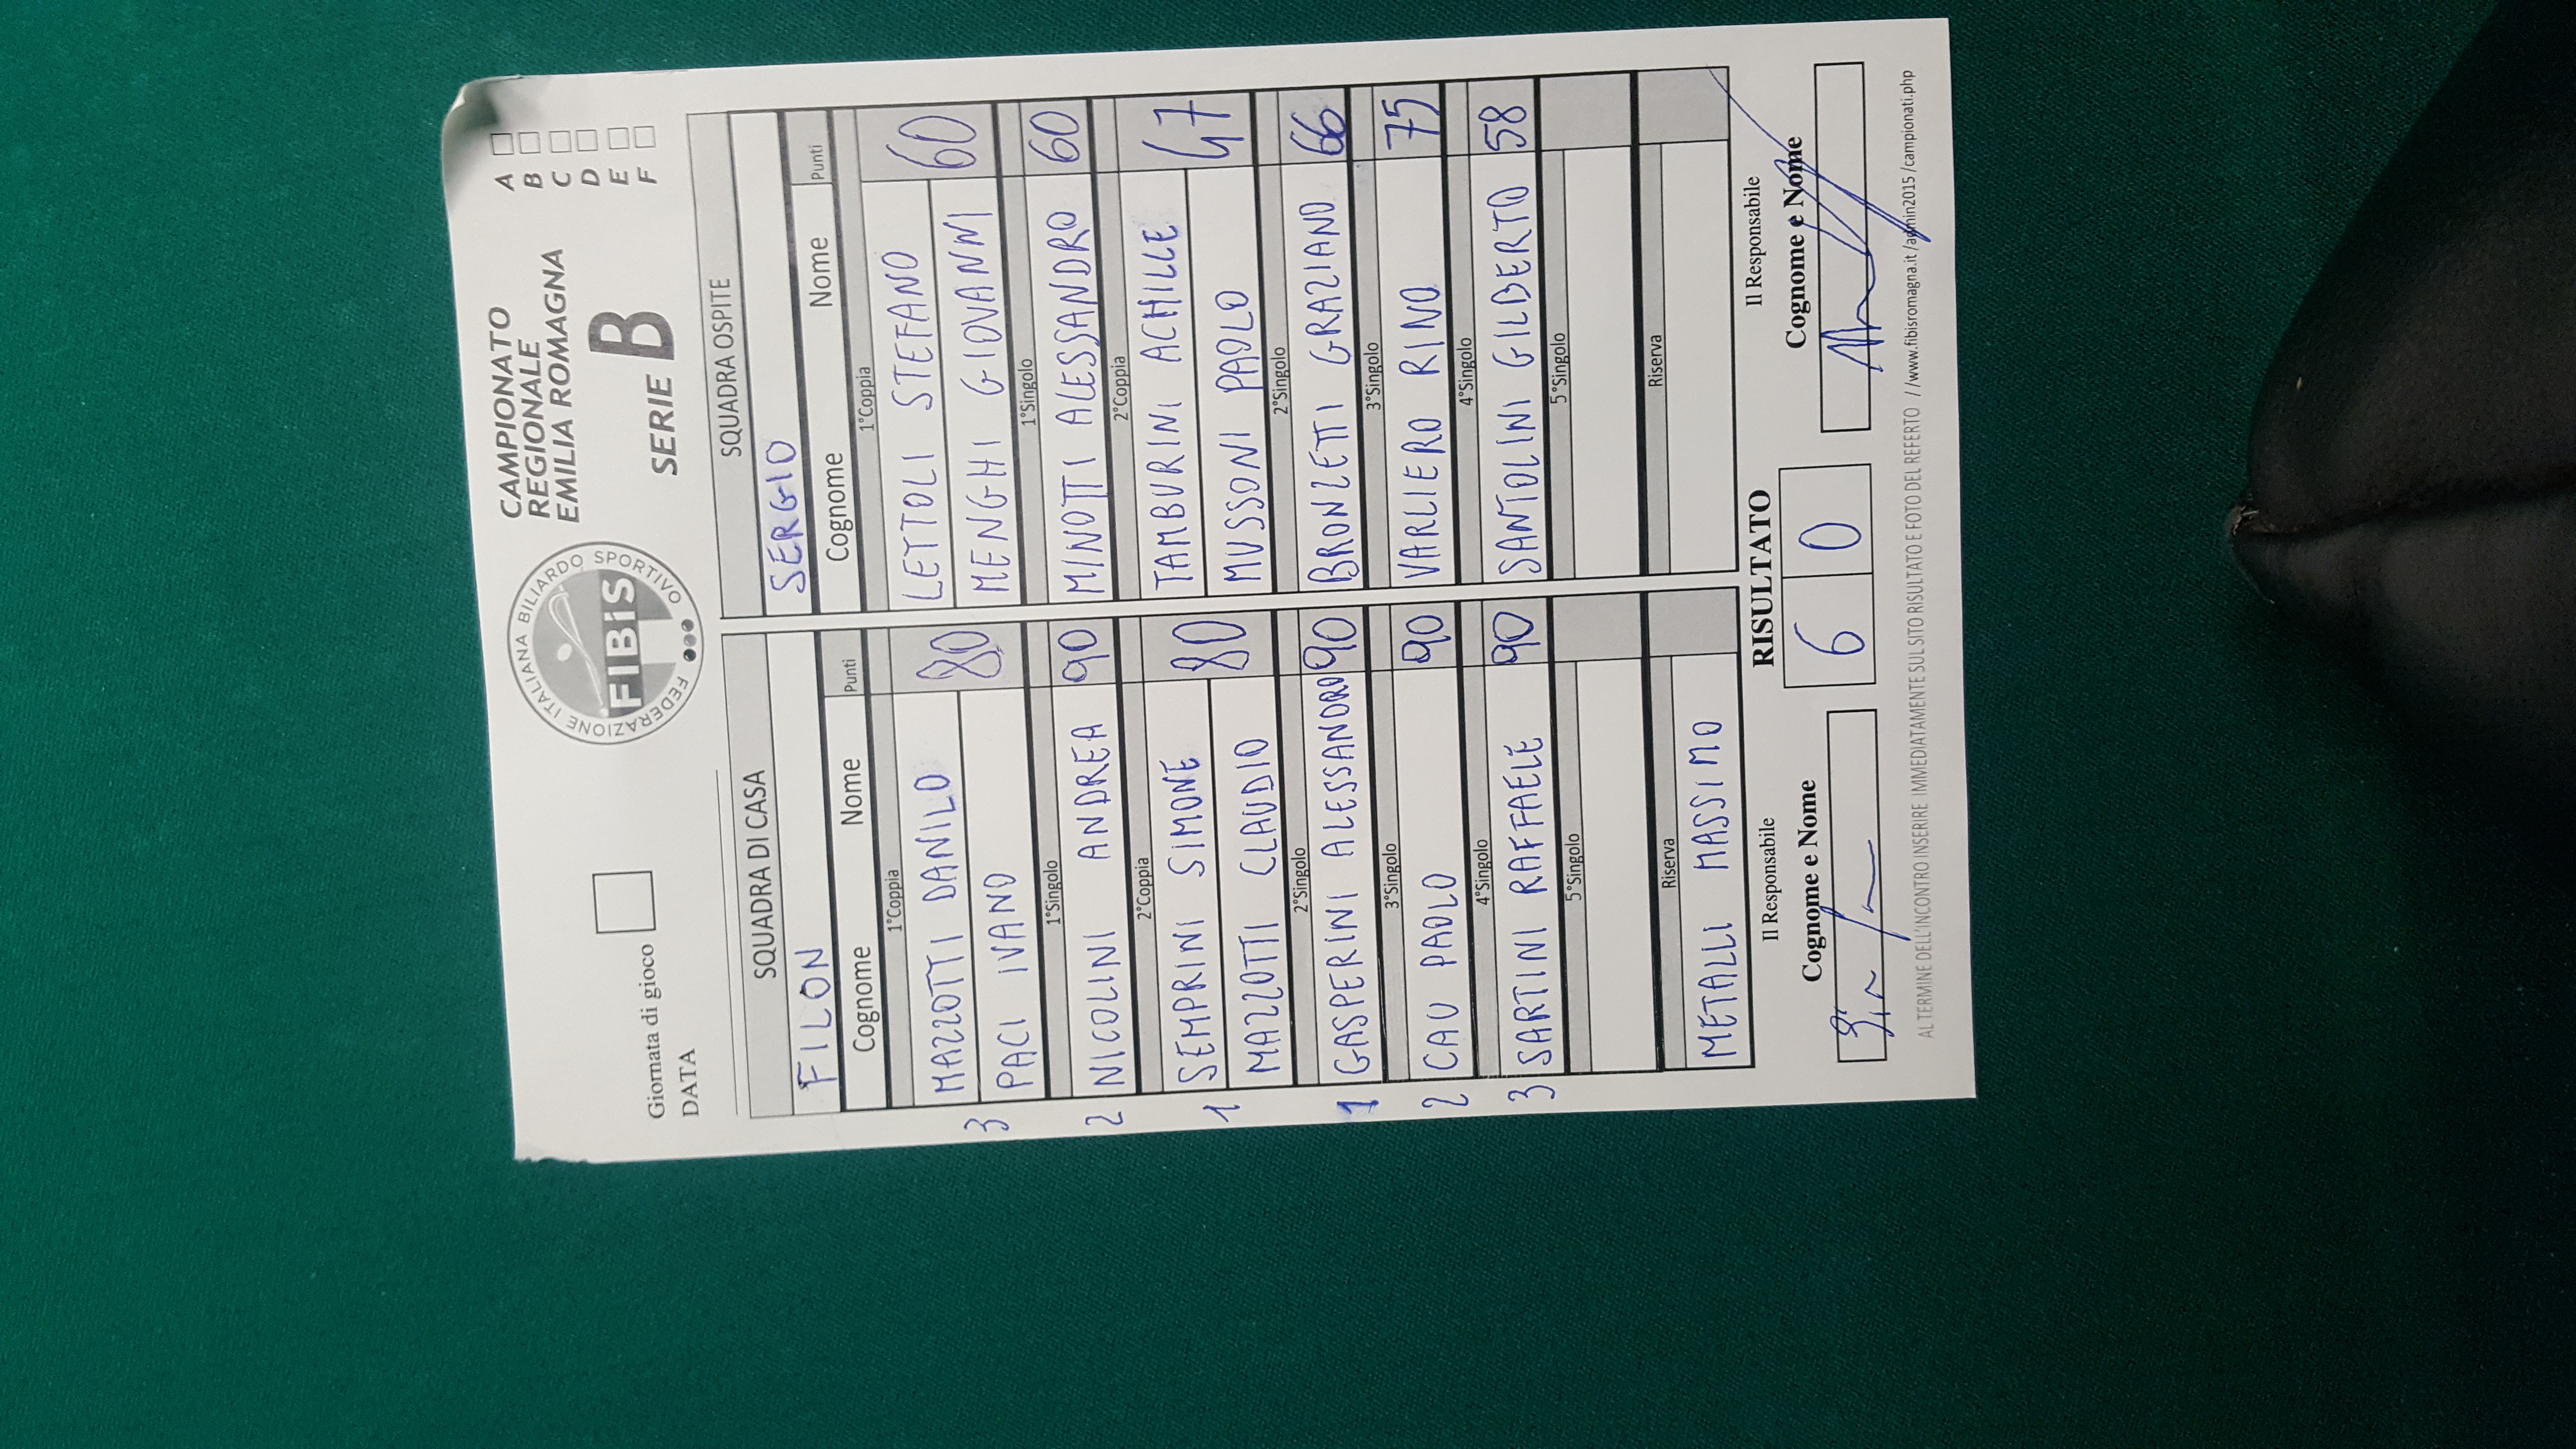 Giornata di gioco
DATA
FEDERAZIONE ITALIANA BILIARDO SPORTIVO
FIBiS
CAMPIONATO
REGIONALE
EMILIA ROMAGNA
SERIE B
A
B
C
D
E
F
SQUADRA DI CASA
FILON
Cognome Nome Punti
1°Coppia
3 MAZZOTTI DANILO
PACI IVANO
80
1°Singolo
2 NICOLINI ANDREA 90
2°Coppia
SEMPRINI SIMONE
1 MAZZOTTI CLAUDIO
80
2°Singolo
1 GASPERINI ALESSANDRO 90
3°Singolo
2 CAU PAOLO 90
4°Singolo
3 SARTINI RAFFAELE 90
5°Singolo
Riserva
METALLI MASSIMO
SQUADRA OSPITE
SERGIO
Cognome Nome Punti
1°Coppia
LETTOLI STEFANO
MENGHI GIOVANNI
60
1°Singolo
MINOTTI ALESSANDRO 60
2°Coppia
TAMBURINI ACHILLE
MUSSONI PAOLO
47
2°Singolo
BRONZETTI GRAZIANO 66
3°Singolo
VARLIERO RINO 75
4°Singolo
SANTOLINI GILBERTO 58
5°Singolo
Riserva
Il Responsabile
Cognome e Nome
RISULTATO
6 0
Il Responsabile
Cognome e Nome
AL TERMINE DELL'INCONTRO INSERIRE IMMEDIATAMENTE SUL SITO RISULTATO E FOTO DEL REFERTO /www.fibisromagna.it /admin2015 /campionati.php